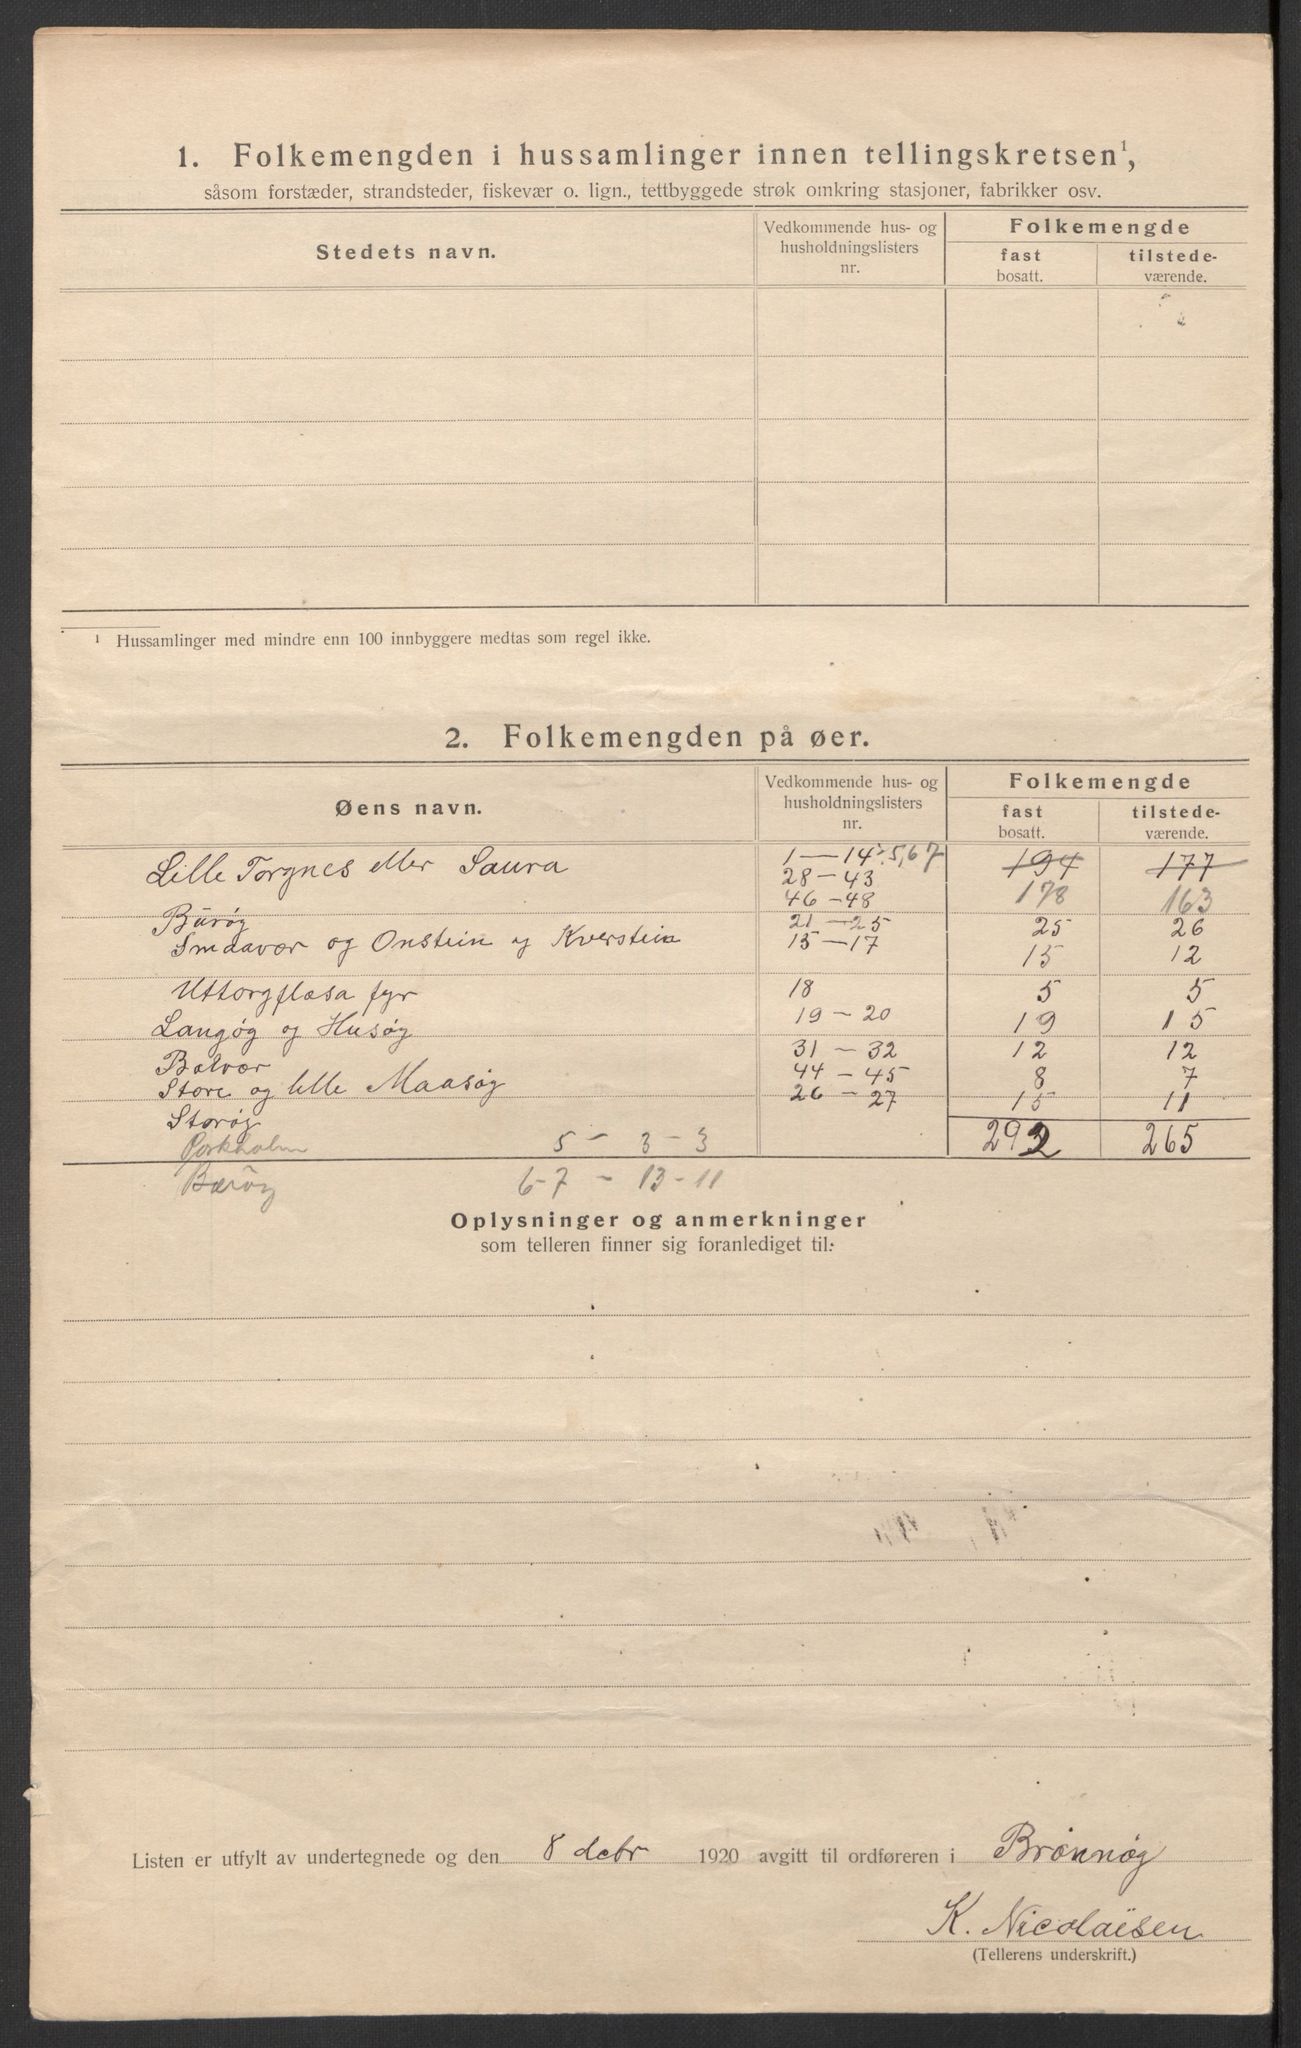 1. Folkemengden i hussamlinger innen tellingskretsen¹,
såsom forstæder, strandsteder, fiskevær o. lign., tettbyggede strøk omkring stasjoner, fabrikker osv.
Stedets navn.
Vedkommende hus- og husholdningslisters nr.
Folkemengde
fast bosatt.
tilstede-værende.
¹ Hussamlinger med mindre enn 100 innbyggere medtas som regel ikke.
2. Folkemengden på øer.
Øens navn.
Vedkommende hus- og husholdningslisters nr.
Folkemengde
fast bosatt.
tilstede-værende.
Lille Torgnes eller Saura 1—14 5,67 194 177
28—43
46—48 178 163
Burøy 21—25 25 26
Smaavær og Onstein og Kverstein 15—17 15 12
Uttorgflæsa fyr 18 5 5
Langøy og Husøy 19—20 19 15
Balvær 31—32 12 12
Store og lille Maasøy 44—45 8 7
Storøy 26—27 15 11
292 265
5 - 3 - 3
Bærøy 6-7 - 13-11
Oplysninger og anmerkninger
som telleren finner sig foranlediget til:
Listen er utfylt av undertegnede og den 8 debr 1920 avgitt til ordføreren i Brønnøy
K. Nicolaïsen
(Tellerens underskrift.)